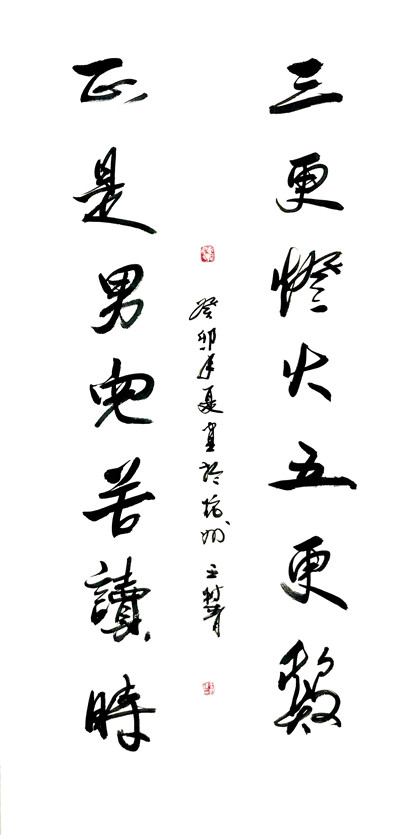 三更燈火五更雞
正是男兒苦讀時
癸卯年夏書於杭州 王